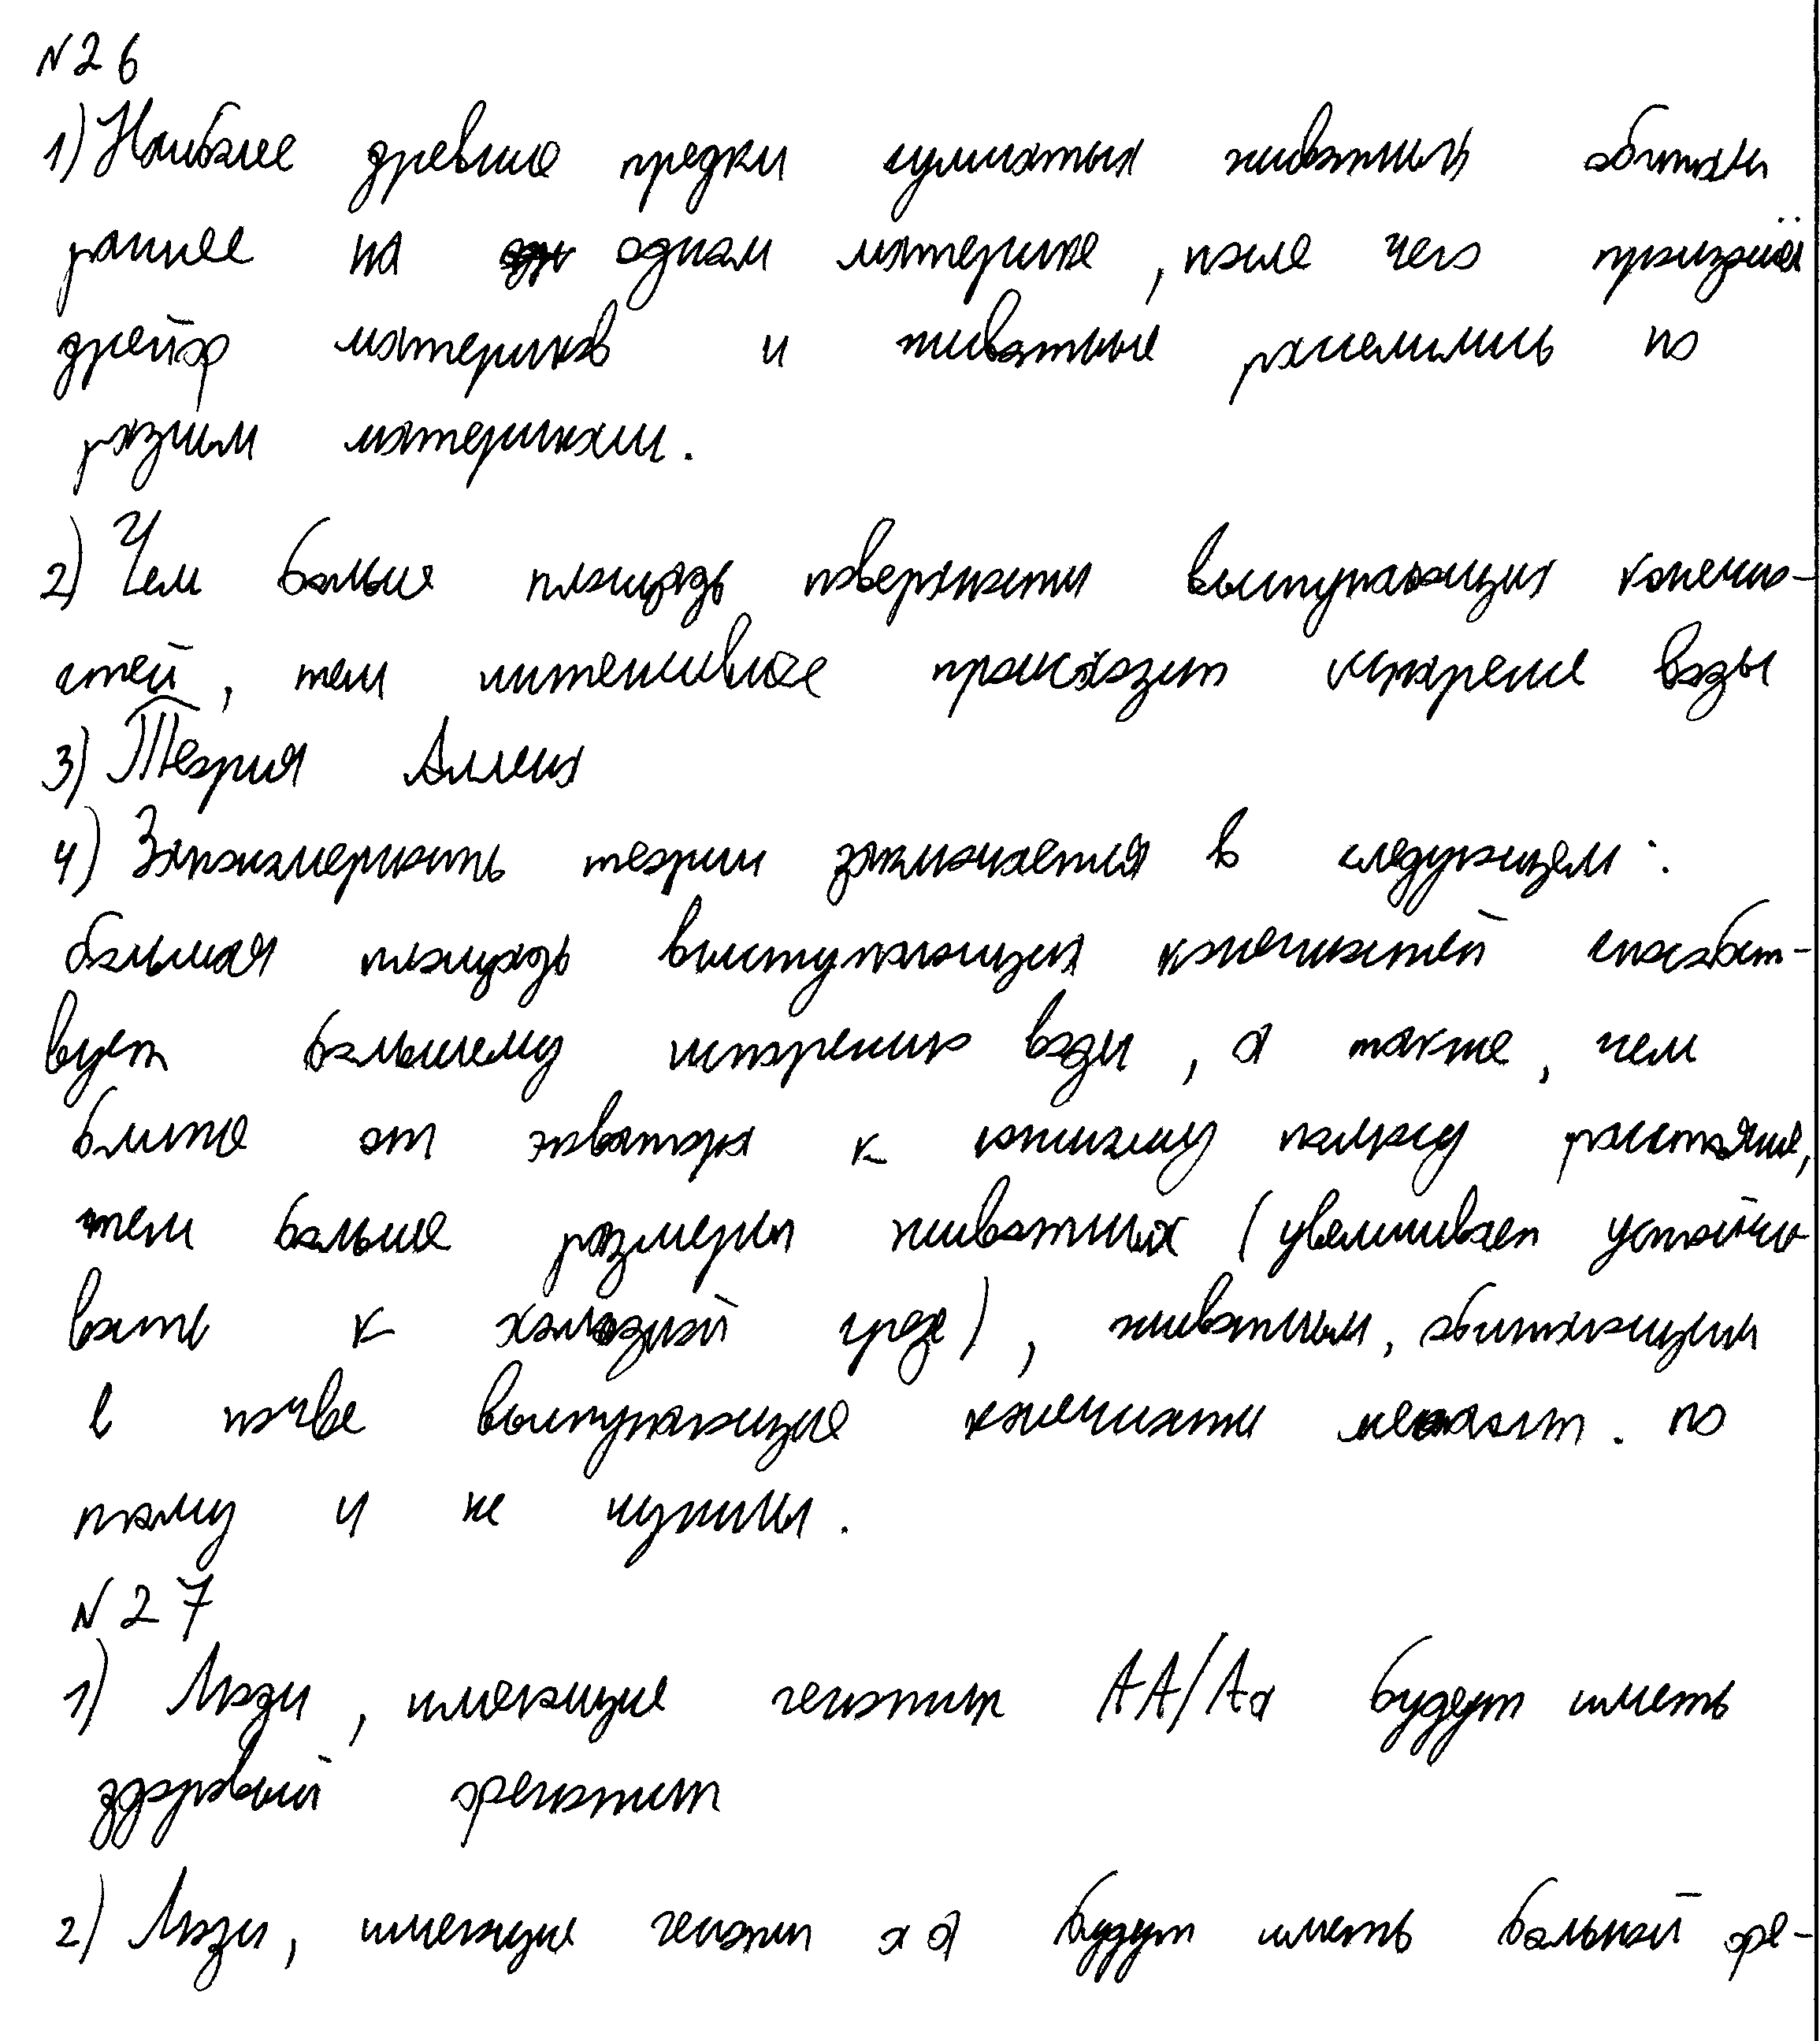 N26
1) Наиболее древние предки сумчатых животных обитали
раннее на одном материке, после чего произошёл
дрейф материков и животные расселились по
разным материкам.
2) Чем больше площадь поверхности выступающих конечно-
стей, тем интенсивнее происходит испарение воды
3) Теория Аллена
4) Закономерность теории заключается в следующем:
большая площадь выступающих конечностей способст-
вует большему испарению воды, а также, чем
ближе от экватора к южному полюсу расстояние,
тем больше размеры животных (увеличивает устойчи
вость к холодной среде), животным, обитающим
в почве выступающие конечности мешают. по
тому и не нужны.
N27
1) Люди, имеющие генотип AA/Aa будут иметь
здоровый фенотип
2) Люди, имеющие генотип аа будут иметь больной фе-